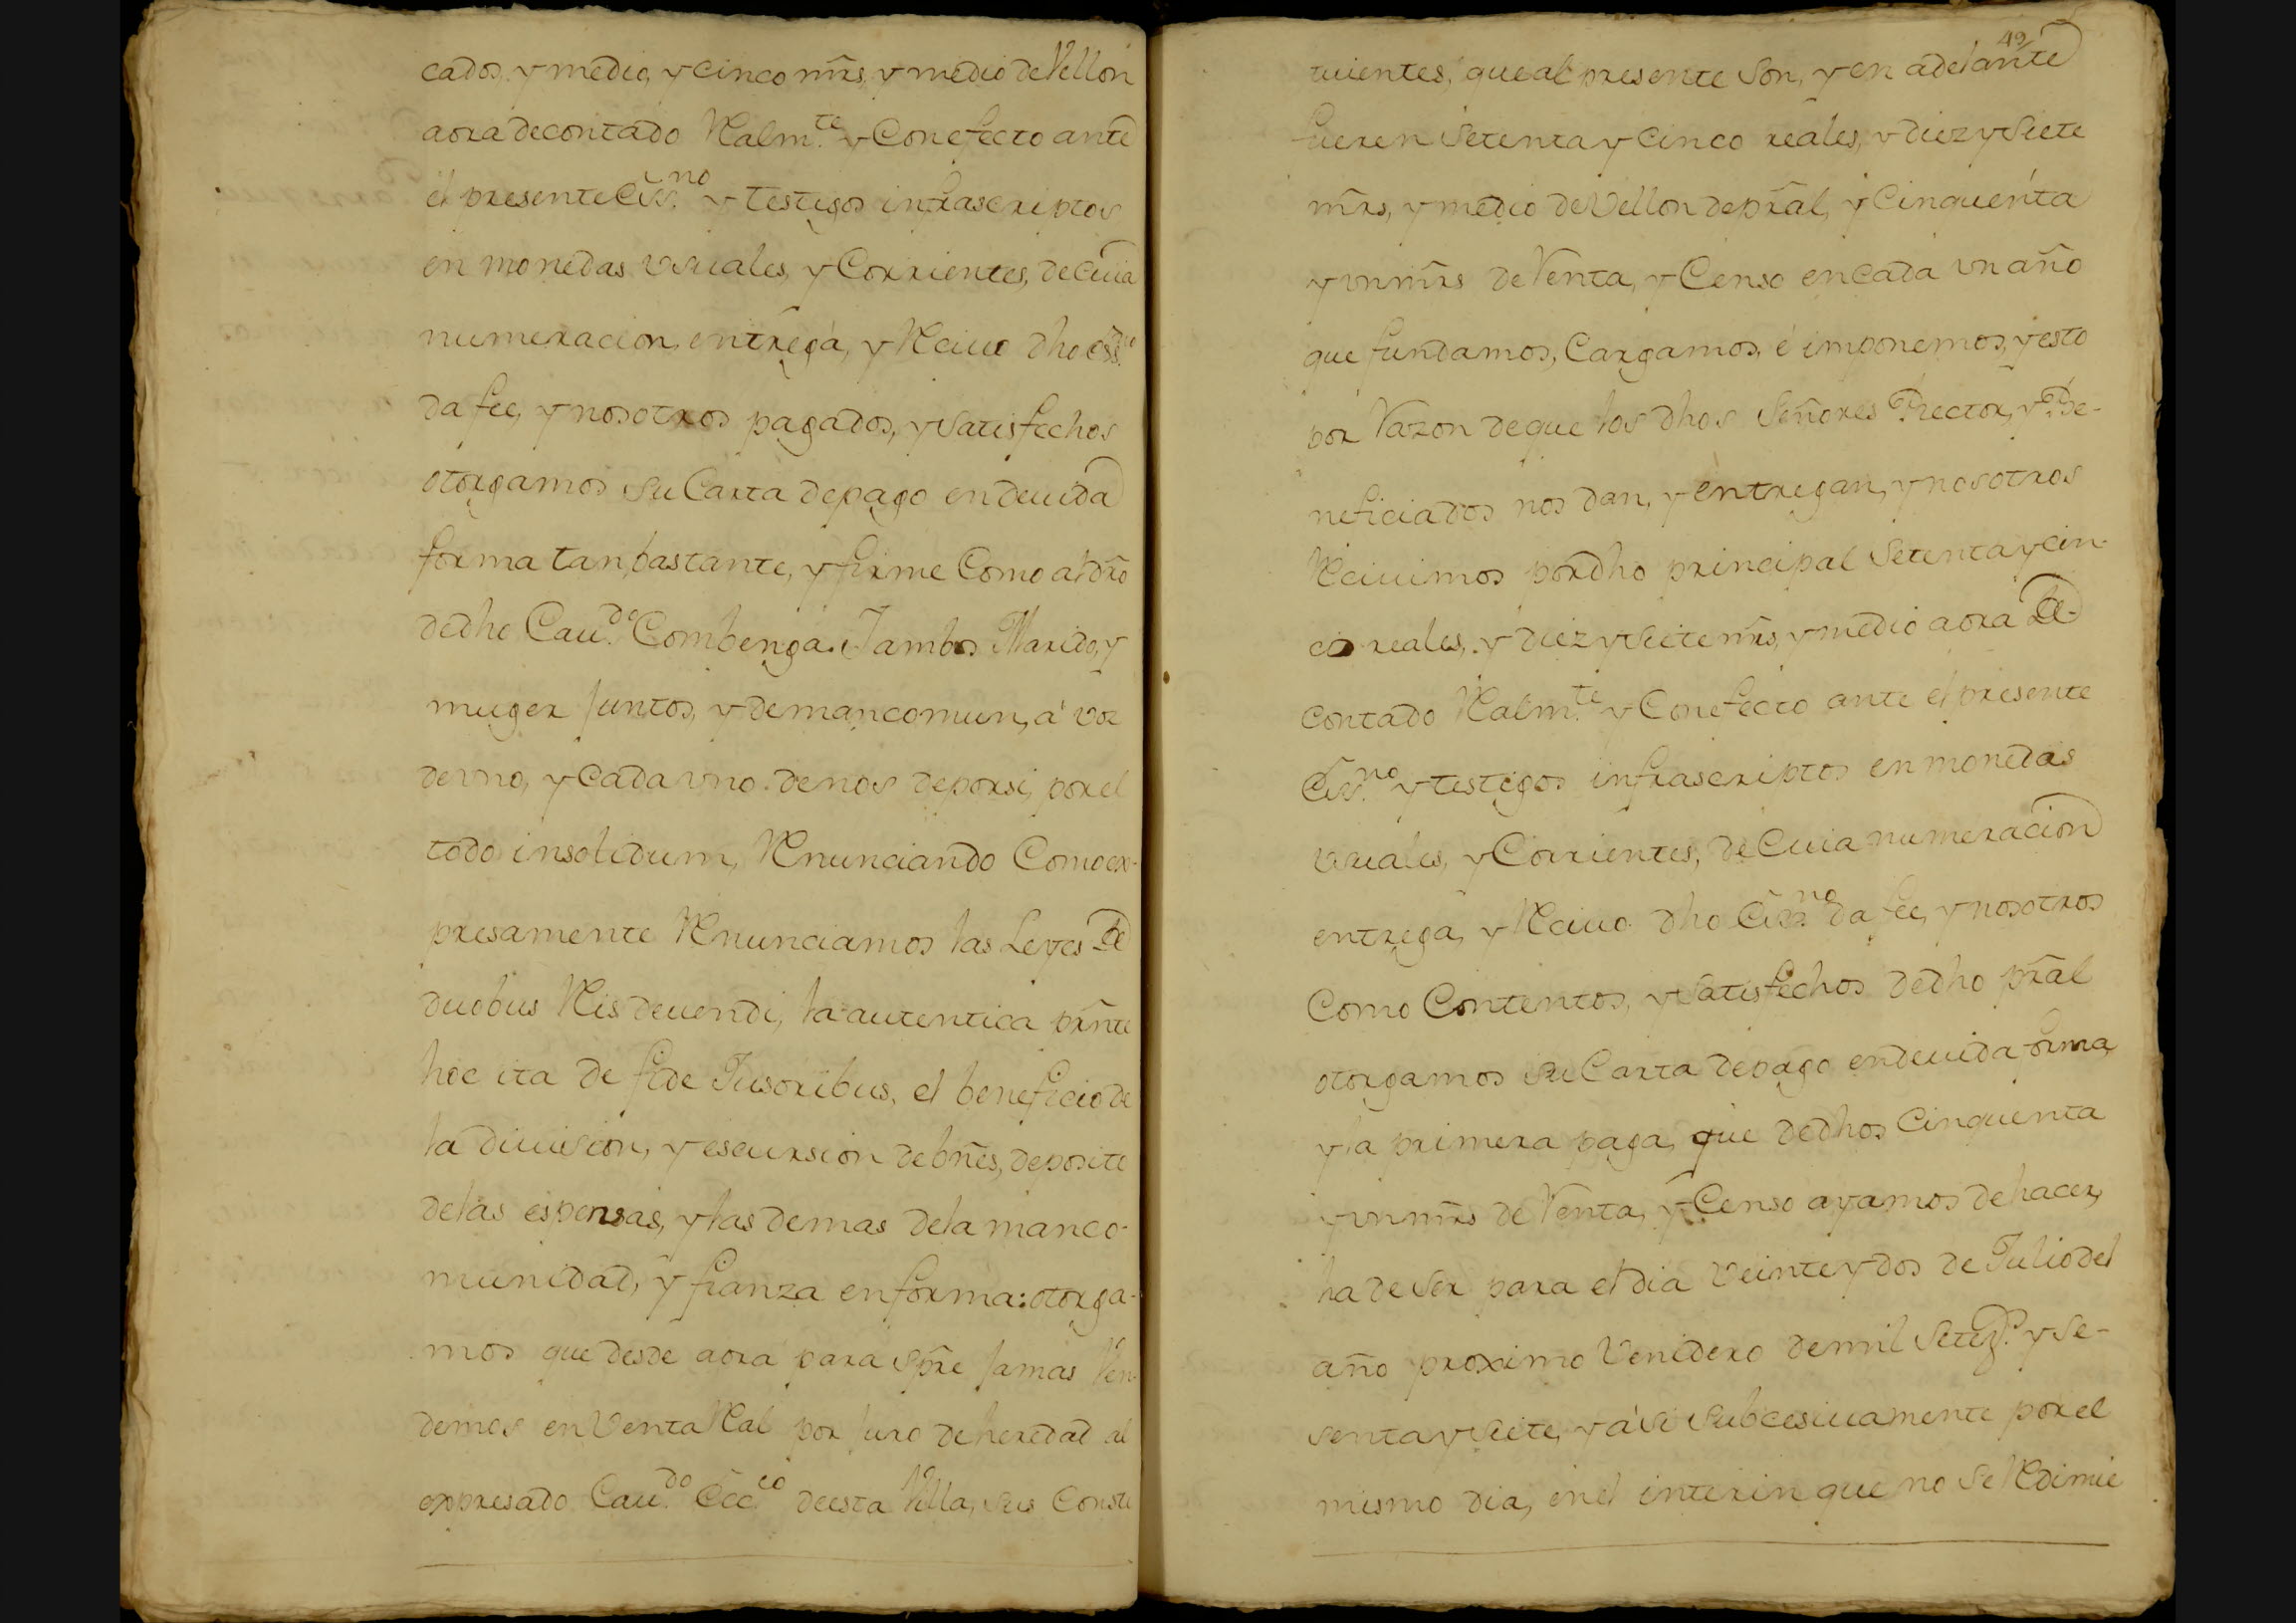 cados, y medio, y cinco mrs, y medio de Vellon
aora decontado Realm.te y Conefecto ante
el presente Ess.no y testigos infrascriptos
en monedas usuales, y Corrientes, de cuia
numeracion, entrega, y Reciuo dho ess.no
da fee, y nosotros pagados, y satisfechos
otorgamos su Carta depago endeuida
forma tan bastante, y firme Como al dro
dedho Cau.do Combenga. Jambos Marido, y
muger juntos, y demancomun, á voz
deuno, y Cadauno denos deporsi, porel
todo insolidum, Renunciando Como ex-
presamente Renunciamos las Leyes De
duobus Reis deuendi, la autentica prnte
hoc ita de fide Jusoribus, el beneficio de
la diuision, y escursion debnes, deposito
delas espensas, y las demas dela manco-
munidad, y fianza enforma: otorga-
mos que desde aora para spre jamas Ven-
demos en Venta Real por juro deheredad al
expresado Cau.do Ecc.co deesta Villa, sus Consti
49
tuientes, queal presente son, y en adelante
fueren setenta y cinco reales, y diez y siete
mrs, y medio de Vellon deprãl, y Cinquenta
y un mrs de Renta, y Censo encada un año
que fundamos, Cargamos, é imponemos, y esto
por Razon deque los dhos Señores Rector, y Be-
neficiados nos dan, y entregan, y nosotros
Reciuimos pordho principal Setenta y cin-
co reales, y diez y siete mrs, y medio aora De
contado Realm.te y Conefecto ante el presente
Ess.no y testigos infrascriptos en monedas
usuales, y Corrientes, de Cuia numeracion
entrega, y Reciuo dho Ess.no da fee, y nosotros
Como Contentos, y satisfechos dedho prãl
otorgamos su Carta depago endeuida forma,
y la primera paga, que dedhos Cinquenta
y un mrs de Renta, y Censo ayamos dehacer,
ha de ser para el dia Veinte y dos de Julio del
año proximo Venidero demil Setez.s y se-
senta y siete, y asi subcesiuamente porel
mismo dia, enel interin que no se Redimie